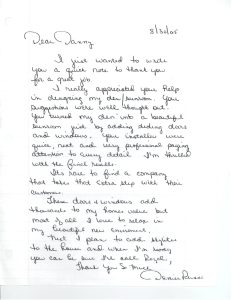 8/30/05
Dear Danny
I just wanted to write
you a quick note to thank you
for a great job.
I really appreciated your help
in designing my den/sunroom. Your
suggestions were well thought out.
You turned my den into a beautiful
sunroom just by adding sliding doors
and windows. Your installer were
quick, neat and very professional paying
attention to every detail. I'm thrilled
with the final results.
Its rare to find a company
that takes that extra step with their
customer.
These doors & windows add
thousands to my homes value but
most of all I love to relax in
my beautiful new environment.
Next I plan to add skylites
to the home and when I'm ready
you can be sure I'll call
Thank You So Much